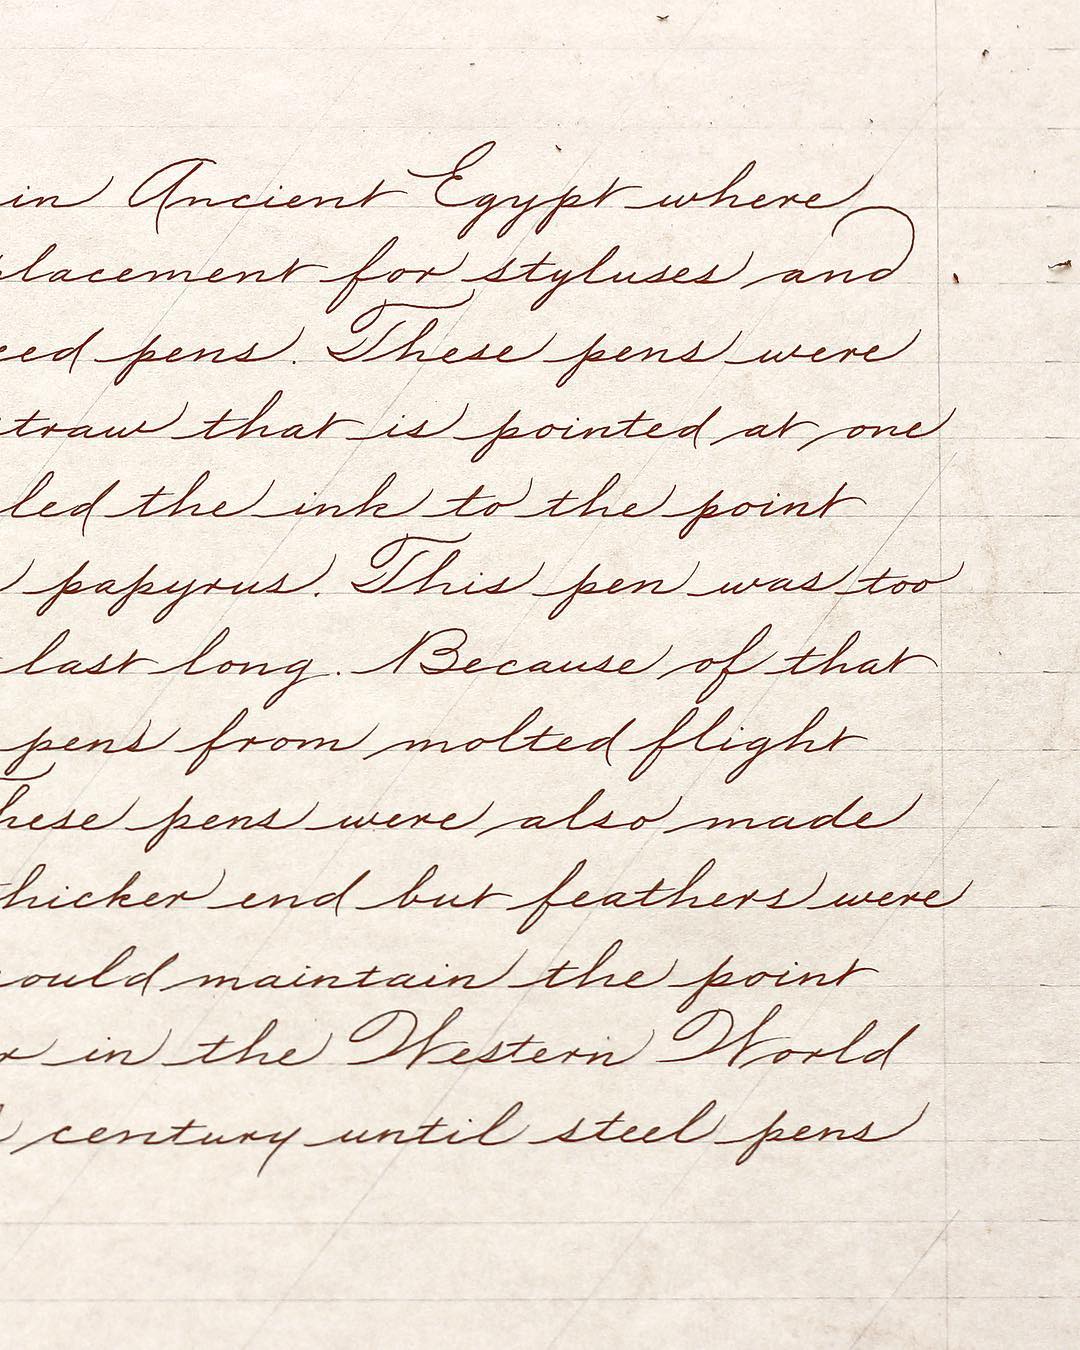 in Ancient Egypt where
placement for styluses and
eed pens. These pens were
traw that is pointed at one
led the ink to the point
papyrus. This pen was too
last long. Because of that
pens from molted flight
hese pens were also made
thicker end but feathers were
ould maintain the point
r in the Western World
century until steel pens